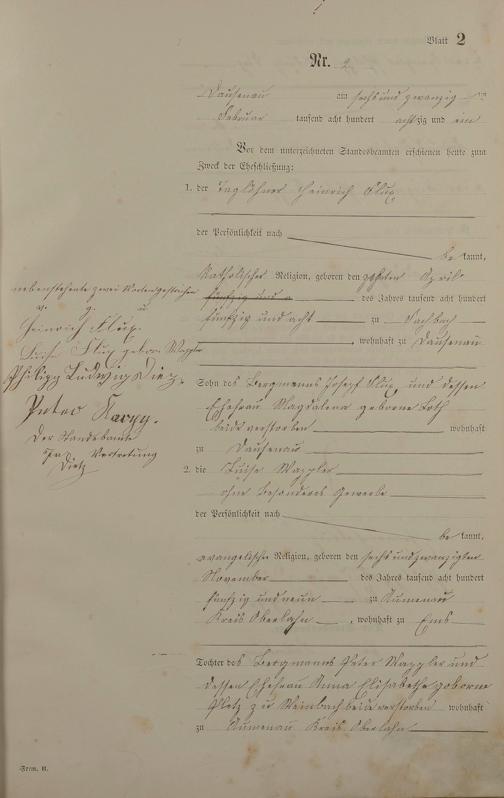 Blatt 2
Nr. 2
Dausenau am sechsundzwanzigten
Februar tausend acht hundert achtzig und ein
Vor dem unterzeichneten Standesbeamten erschienen heute zum
Zweck der Eheschließung:
1. der Taglöhner Heinrich Flux
der Persönlichkeit nach
be kannt,
katholischer Religion, geboren den zehnten April
fünfzig und a des Jahres tausend acht hundert
fünfzig und acht zu Dachbach
, wohnhaft zu Dausenau
Sohn des Bergmanns Josef Flux und dessen
Ehefrau Magdalena geborene Loth
beide verstorben wohnhaft
zu Dausenau
2. die Luise Wappler
ohne besonderes Gewerbe
der Persönlichkeit nach
be kannt,
evangelischer Religion, geboren den sechsundzwanzigten
November des Jahres tausend acht hundert
fünfzig und neun zu Aumenau
Kreis Oberlahn , wohnhaft zu Ems
Tochter des Bergmanns Peter Wappler und
dessen Ehefrau Anna Elisabethe geborene
Pletz zu Weinbach beide verstorben wohnhaft
zu Aumenau Kreis Oberlahn
nebenstehende zwei Worte gestrichen
v. g. u.
Heinrich Flux.
Luise Flux geborene Wappler
Philipp Ludwig Diez.
Peter
Der Standesbeamte
In Vertretung
Dietz
Form. B.